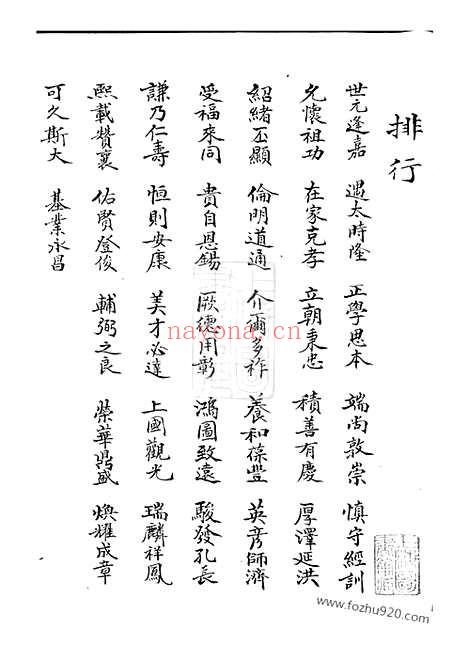 排行
世元逢嘉 遇太時隆 正學思本 端尚敦崇 慎守經訓
允懷祖功 在家克孝 立朝秉忠 積善有慶 厚澤延洪
紹緒丕顯 倫明道通 介爾多祚 養和葆豐 英彥師濟
受福來同 貴自恩錫 厥德用彰 鴻圖致遠 駿發孔長
謙乃仁壽 恒則安康 美才必達 上國觀光 瑞麟祥鳳
熙載贊襄 佑賢登俊 輔弼之良 榮華鼎盛 煥耀成章
可久斯大 基業永昌
nayona.cn
www.fozhu920.com